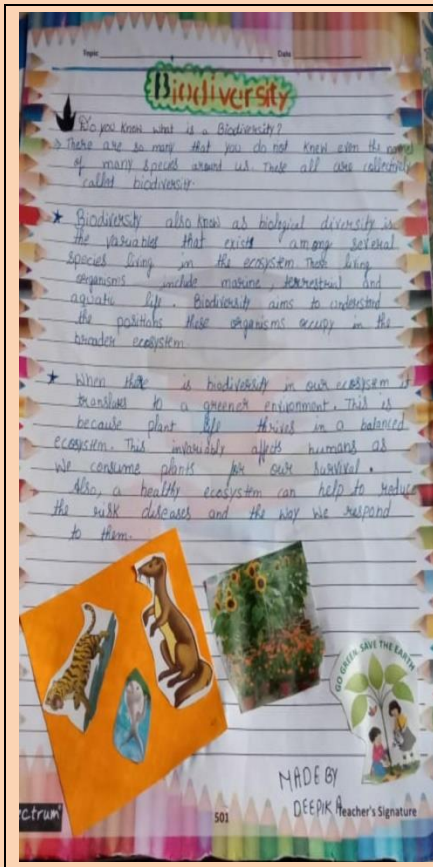 Topic Date
Biodiversity
Do you know what is a Biodiversity?
There are so many that you do not know even the names
of many species around us. These all are collectively
called biodiversity.
★ Biodiversity also know as biological diversity is
the variables that exist among several
species living in the ecosystem. These living
organisms include marine, terrestrial and
aquatic life. Biodiversity aims to understand
the positions these organisms occupy in the
broader ecosystem.
★ When there is biodiversity in our ecosystem it
translates to a greener environment. This is
because plant life thrives in a balanced
ecosystem. This invariably affects humans as
we consume plants for our survival.
Also, a healthy ecosystem can help to reduce
the risk diseases and the way we respond
to them.
GO GREEN SAVE THE EARTH
MADE BY
DEEPIKA
ctrum
501
Teacher's Signature